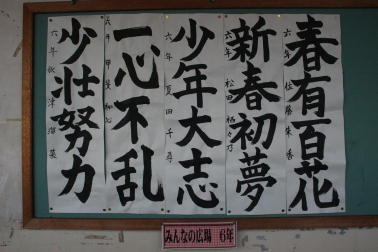 春有百花
六年 佐藤朱香
新春初夢
六年 松田
少年大志
六年 夏田千尋
一心不乱
六年 甲斐
少壮努力
六年
みんなの広場 6年